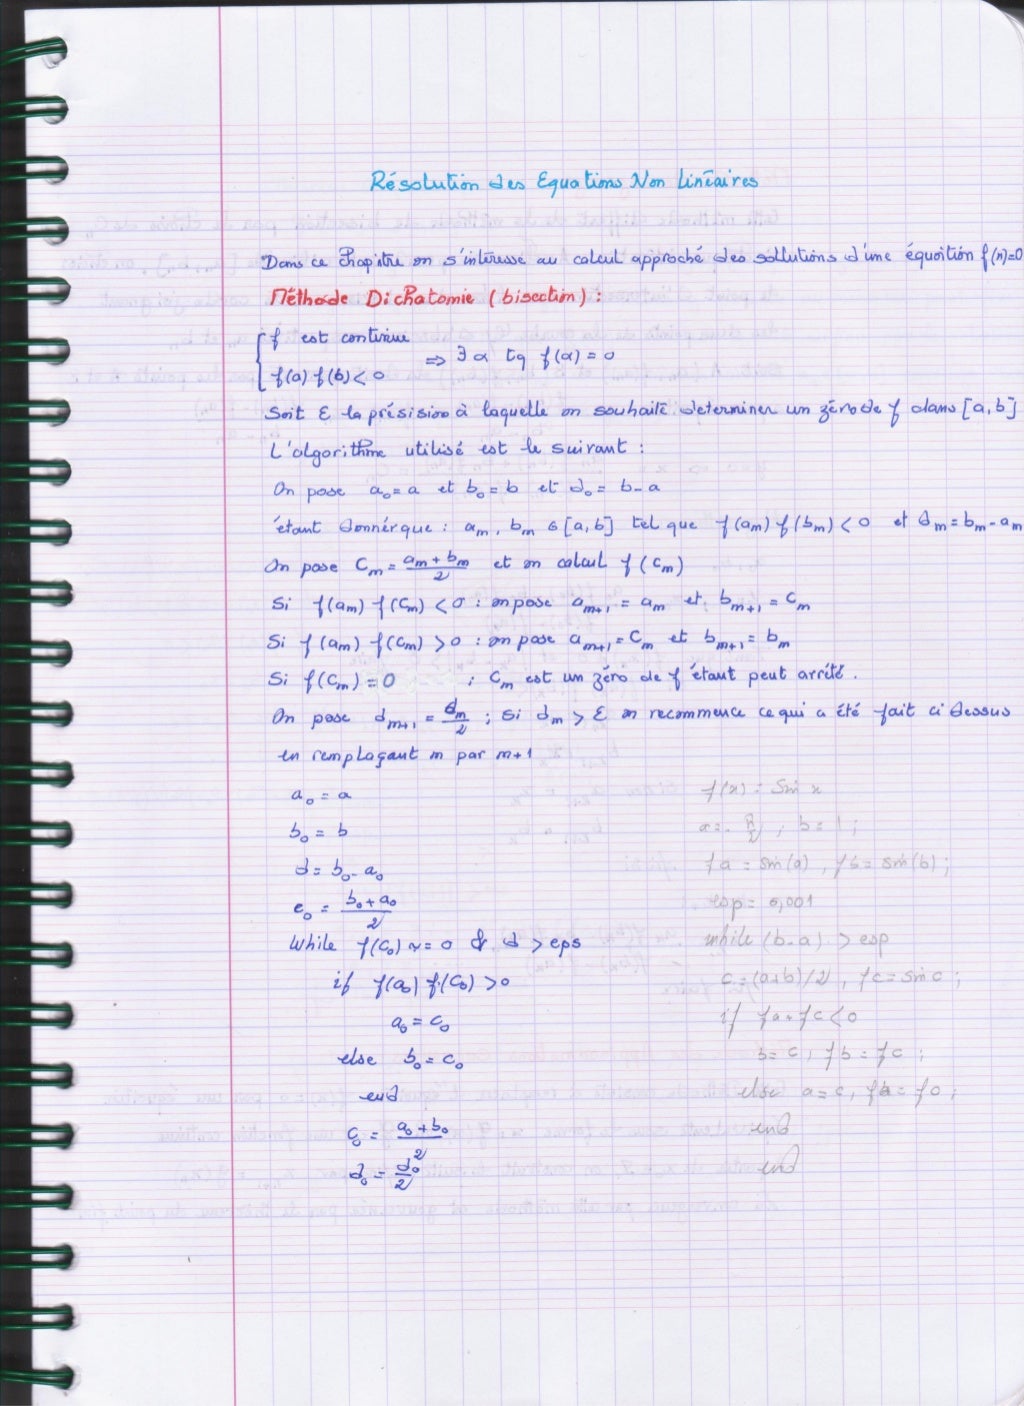 Résolution des Equations Non Linéaires
Dans ce chapitre on s'intéresse au calcul approché des sollutions d'une équation f(x)=0
Méthode Dichotomie (bisection) :
f est continue
⇒ ∃ α tq f(α) = 0
f(a) f(b) < 0
Soit ε la présision à laquelle on souhaite determiner un zéro de f dans [a,b]
L'algorithme utilisé est le suivant :
On pose a₀ = a et b₀ = b et d₀ = b - a
étant donnér que : am, bm ∈ [a,b] tel que f(am) f(bm) < 0 et dm = bm - am
On pose Cm = (am + bm)/2 et on calcul f(Cm)
Si f(am) f(Cm) < 0 : on pose am+1 = am et, bm+1 = Cm
Si f(am) f(Cm) > 0 : on pose am+1 = Cm et bm+1 = bm
Si f(Cm) = 0 ; Cm est un zéro de f étant peut arrêté.
On pose dm+1 = dm/2 ; si dm > ε on recommence ce qui a été fait ci dessus
en remplaçant m par m+1
a₀ = a
b₀ = b
d = b₀ - a₀
e₀ = (b₀ + a₀)/2
While f(C₀) ~= 0 & d > eps
if f(a₀) f(C₀) > 0
a₀ = c₀
else b₀ = c₀
end
c₀ = (a₀ + b₀)/2
d₀ = d₀/2
f(x) : Sin x
, b = 1 ;
fa = sin(a), fb = sin(b) ;
esp = 0,001
while (b-a) > esp
c = (a+b)/2, fc = sin c ;
if fa * fc < 0
b = c, fb = fc ;
else a = c,
end
end